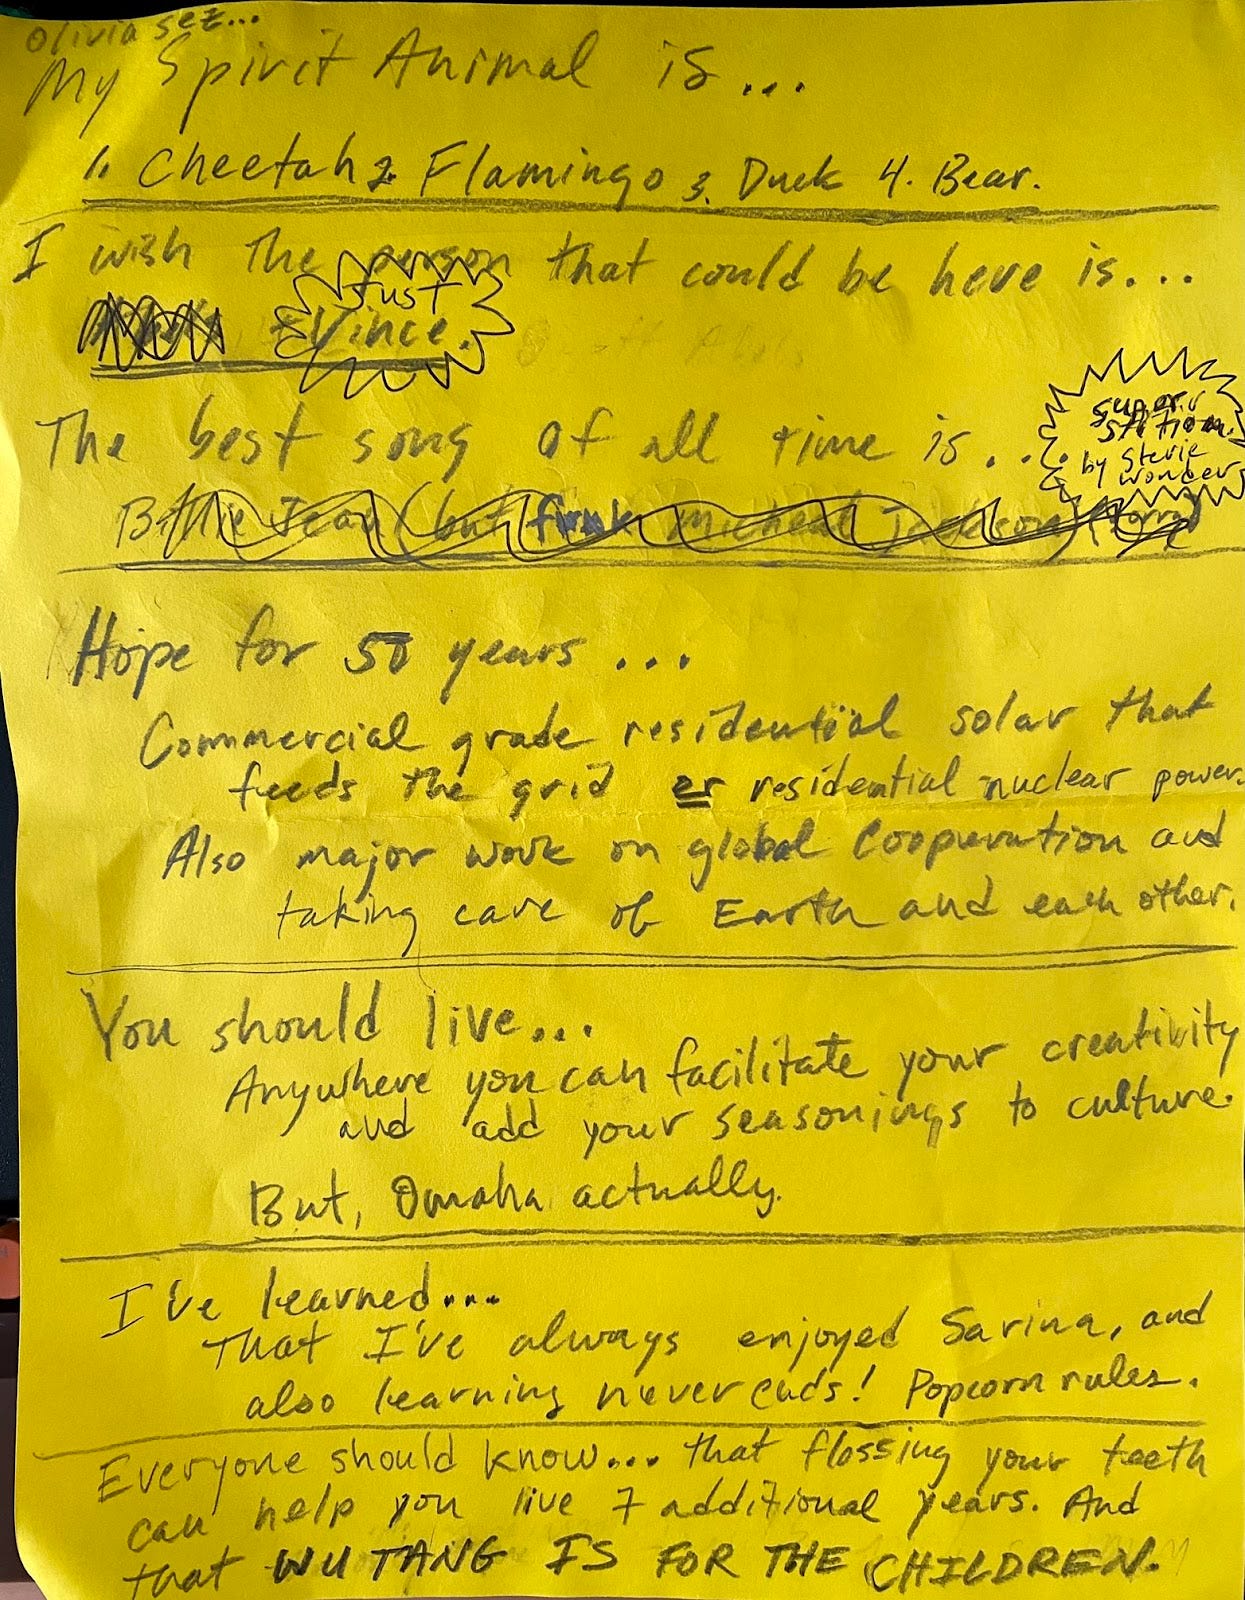 Olivia sez...
My Spirit Animal is...
1. Cheetah 2. Flamingo 3. Duck 4. Bear.
I wish the person that could be here is...
Just
Vince.
The best song of all time is...
Superstition
by Stevie
Wonder
Billie Jean (but fuck Micheal Jackson)
Hope for 50 years...
Commercial grade residential solar that
feeds the grid or residential nuclear power.
Also major work on global Cooperation and
taking care of Earth and each other.
You should live...
Anywhere you can facilitate your creativity
and add your seasonings to culture.
But, Omaha actually.
I've learned...
That I've always enjoyed Sarina, and
also learning never ends! Popcorn rules.
Everyone should know... that flossing your teeth
can help you live 7 additional years. And
that WU TANG IS FOR THE CHILDREN.